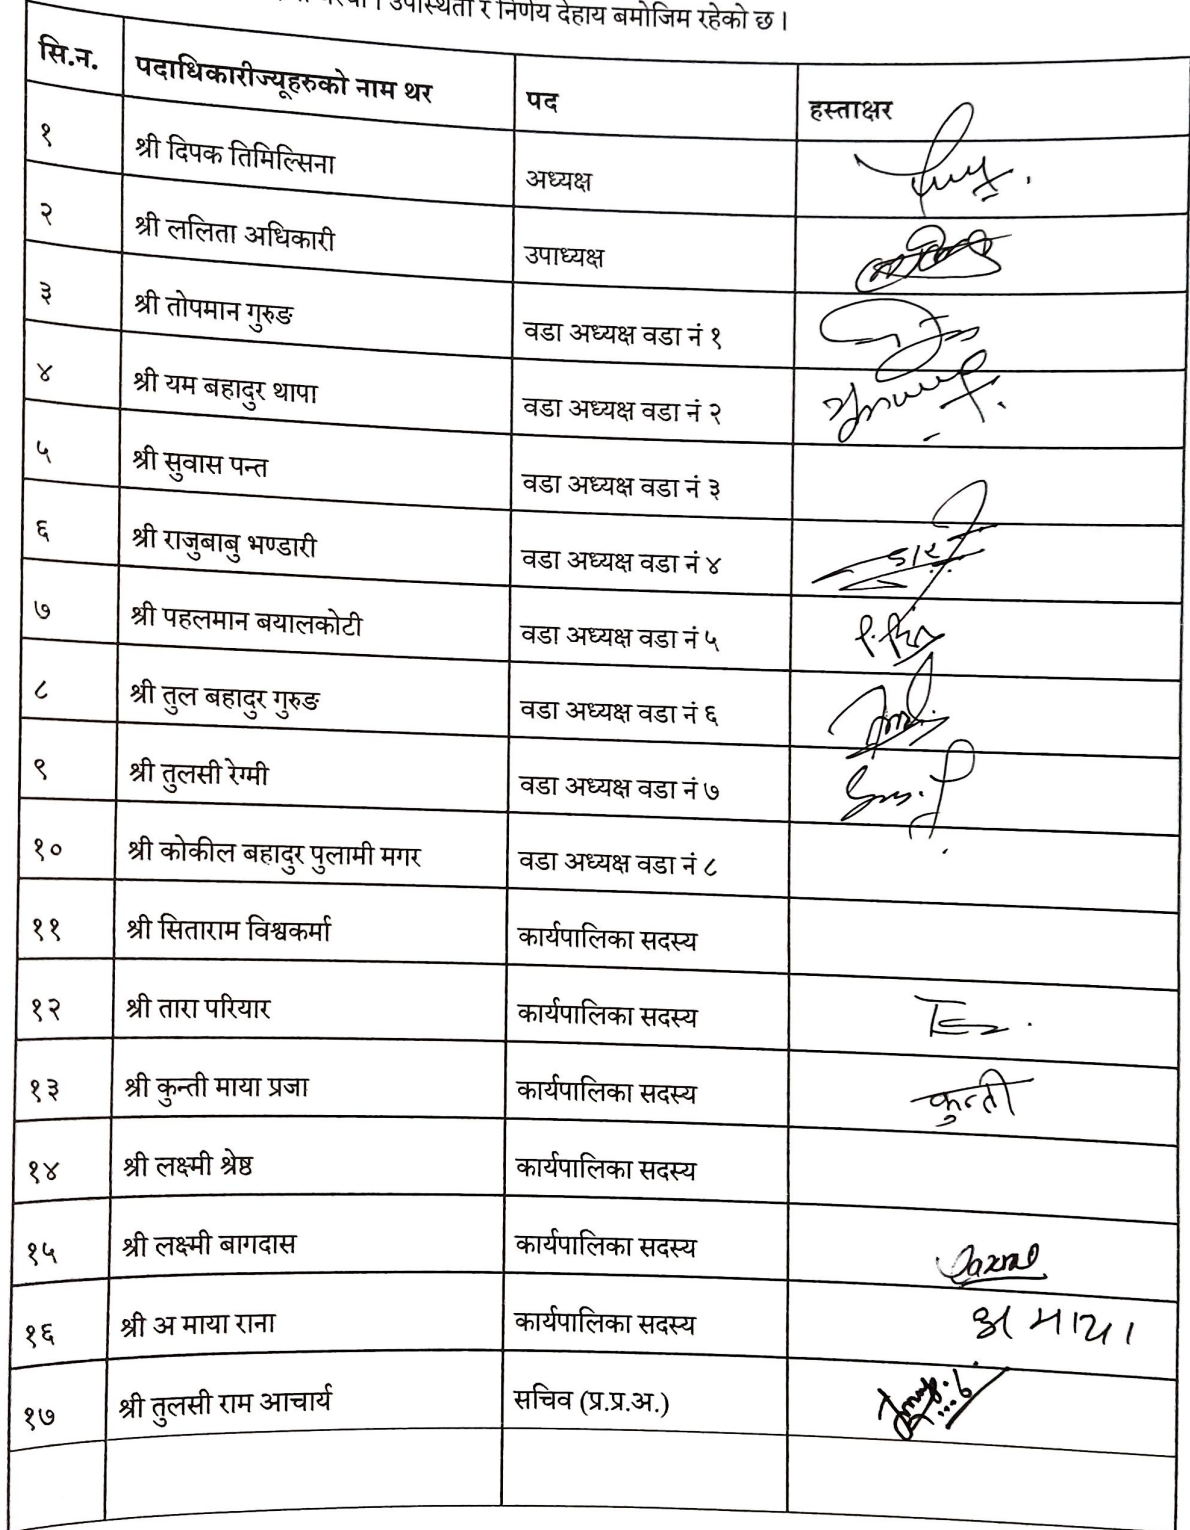 उपस्थिती र निर्णय देहाय बमोजिम रहेको छ ।
सि.न. पदाधिकारीज्यूहरुको नाम थर पद हस्ताक्षर
१ श्री दिपक तिमिल्सिना अध्यक्ष
२ श्री ललिता अधिकारी उपाध्यक्ष
३ श्री तोपमान गुरुङ वडा अध्यक्ष वडा नं १
४ श्री यम बहादुर थापा वडा अध्यक्ष वडा नं २
५ श्री सुवास पन्त वडा अध्यक्ष वडा नं ३
६ श्री राजुबाबु भण्डारी वडा अध्यक्ष वडा नं ४
७ श्री पहलमान बयालकोटी वडा अध्यक्ष वडा नं ५
८ श्री तुल बहादुर गुरुङ वडा अध्यक्ष वडा नं ६
९ श्री तुलसी रेग्मी वडा अध्यक्ष वडा नं ७
१० श्री कोकील बहादुर पुलामी मगर वडा अध्यक्ष वडा नं ८
११ श्री सिताराम विश्वकर्मा कार्यपालिका सदस्य
१२ श्री तारा परियार कार्यपालिका सदस्य
१३ श्री कुन्ती माया प्रजा कार्यपालिका सदस्य कुन्ती
१४ श्री लक्ष्मी श्रेष्ठ कार्यपालिका सदस्य
१५ श्री लक्ष्मी बागदास कार्यपालिका सदस्य
१६ श्री अ माया राना कार्यपालिका सदस्य अ माया
१७ श्री तुलसी राम आचार्य सचिव (प्र.प्र.अ.)